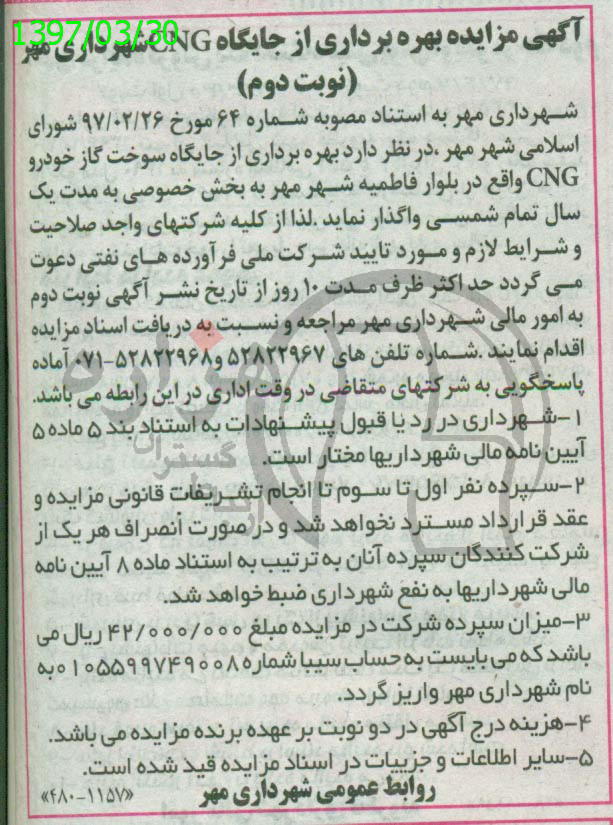 1397/03/30
آگهی مزایده بهره برداری از جایگاه CNG شهرداری مهر
(نوبت دوم)
شهرداری مهر به استناد مصوبه شماره ۶۴ مورخ ۹۷/۰۲/۲۶ شورای
اسلامی شهر مهر ،در نظر دارد بهره برداری از جایگاه سوخت گاز خودرو
CNG واقع در بلوار فاطمیه شهر مهر به بخش خصوصی به مدت یک
سال تمام شمسی واگذار نماید .لذا از کلیه شرکتهای واجد صلاحیت
و شرایط لازم و مورد تایید شرکت ملی فرآورده های نفتی دعوت
می گردد حداکثر ظرف مدت ۱۰ روز از تاریخ نشر آگهی نوبت دوم
به امور مالی شهرداری مهر مراجعه و نسبت به دریافت اسناد مزایده
اقدام نمایند .شماره تلفن های ۵۲۸۲۲۹۶۷ و۵۲۸۲۲۹۶۸-۰۷۱ آماده
پاسخگویی به شرکتهای متقاضی در وقت اداری در این رابطه می باشد.
۱-شهرداری در رد یا قبول پیشنهادات به استناد بند ۵ ماده ۵
آیین نامه مالی شهرداریها مختار است.
۲-سپرده نفر اول تا سوم تا انجام تشریفات قانونی مزایده و
عقد قرارداد مسترد نخواهد شد و در صورت انصراف هر یک از
شرکت کنندگان سپرده آنان به ترتیب به استناد ماده ۸ آیین نامه
مالی شهرداریها به نفع شهرداری ضبط خواهد شد.
۳-میزان سپرده شرکت در مزایده مبلغ ۴۲/۰۰۰/۰۰۰ ریال می
باشد که می بایست به حساب سیبا شماره ۰۱۰۵۵۹۹۷۴۹۰۰۸ به
نام شهرداری مهر واریز گردد.
۴-هزینه درج آگهی در دو نوبت بر عهده برنده مزایده می باشد.
۵-سایر اطلاعات و جزییات در اسناد مزایده قید شده است.
روابط عمومی شهرداری مهر
«۴۸۰-۱۱۵۷»
هزاره
گستران